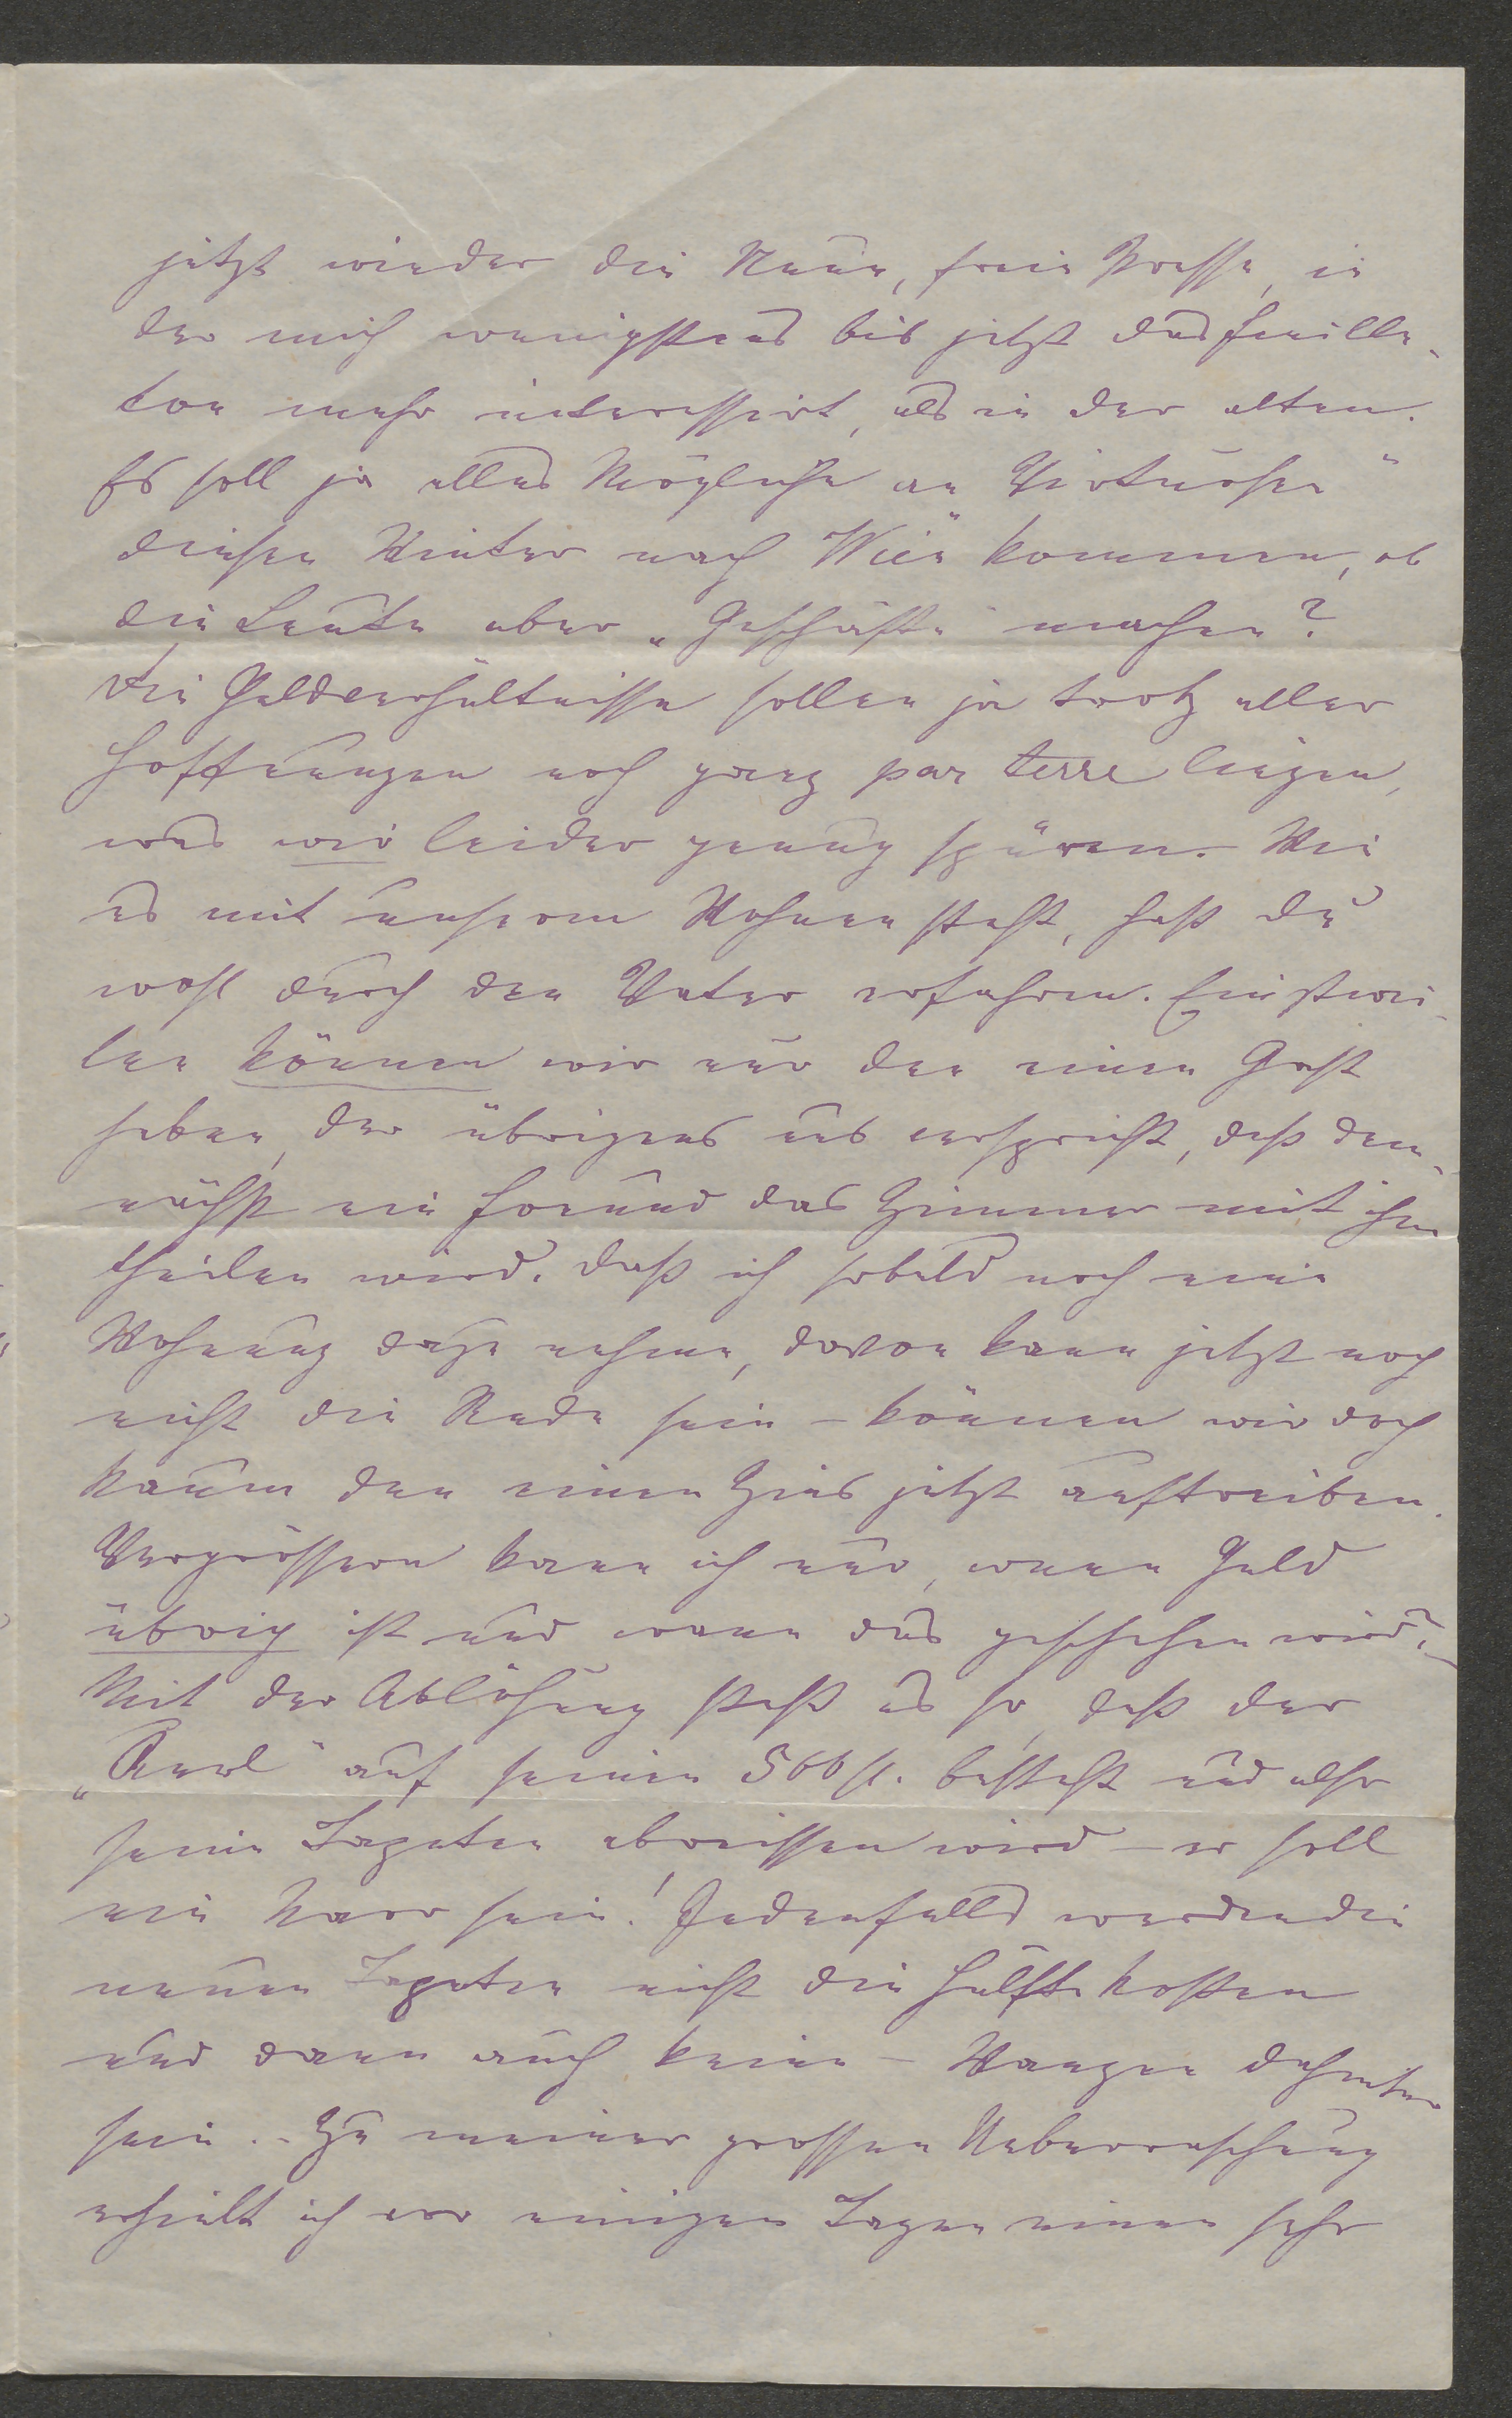 jetzt wieder die Neue, freie Presse, in
der mich wenigstens bis jetzt das Feuille-
ton mehr interessirt, als in der alten.
Es soll ja alles Mögliche an Virtuosen
diesen Winter nach Wien kommen, ob
die Leute aber „Geschäfte“ machen?
Die Geldverhältnisse sollen ja trotz aller
Hoffnungen noch ganz par terre liegen,
was wir leider genug spüren. Wie
es mit unserem Wohnen steht, hast Du
wohl durch den Vater erfahren. Einstwei-
len können wir nur den einen Gast
haben, der übrigens uns verspricht, daß dem-
nächst ein Freund das Zimmer mit ihm
theilen wird. Daß ich sobald noch eine
Wohnung dazu nehme, davon kann jetzt noch
nicht die Rede sein – können wir doch
kaum den einen Zins jetzt auftreiben.
Vergrössern kann ich nur, wenn Geld
übrig ist und wann das geschehen wird?
Mit der Ablösung steht es so, daß der
„Kerl“ auf seinen 500 fl. besteht und also
seine Tapeten abreissen wird – er soll
ein Narr sein! Jedenfalls werden die
neuen Tapeten nicht die Hälfte kosten
und dann auch keine – Wanzen dahinter
sein. – Zu meiner grossen Ueberraschung
erhielt ich vor einigen Tagen einen sehr